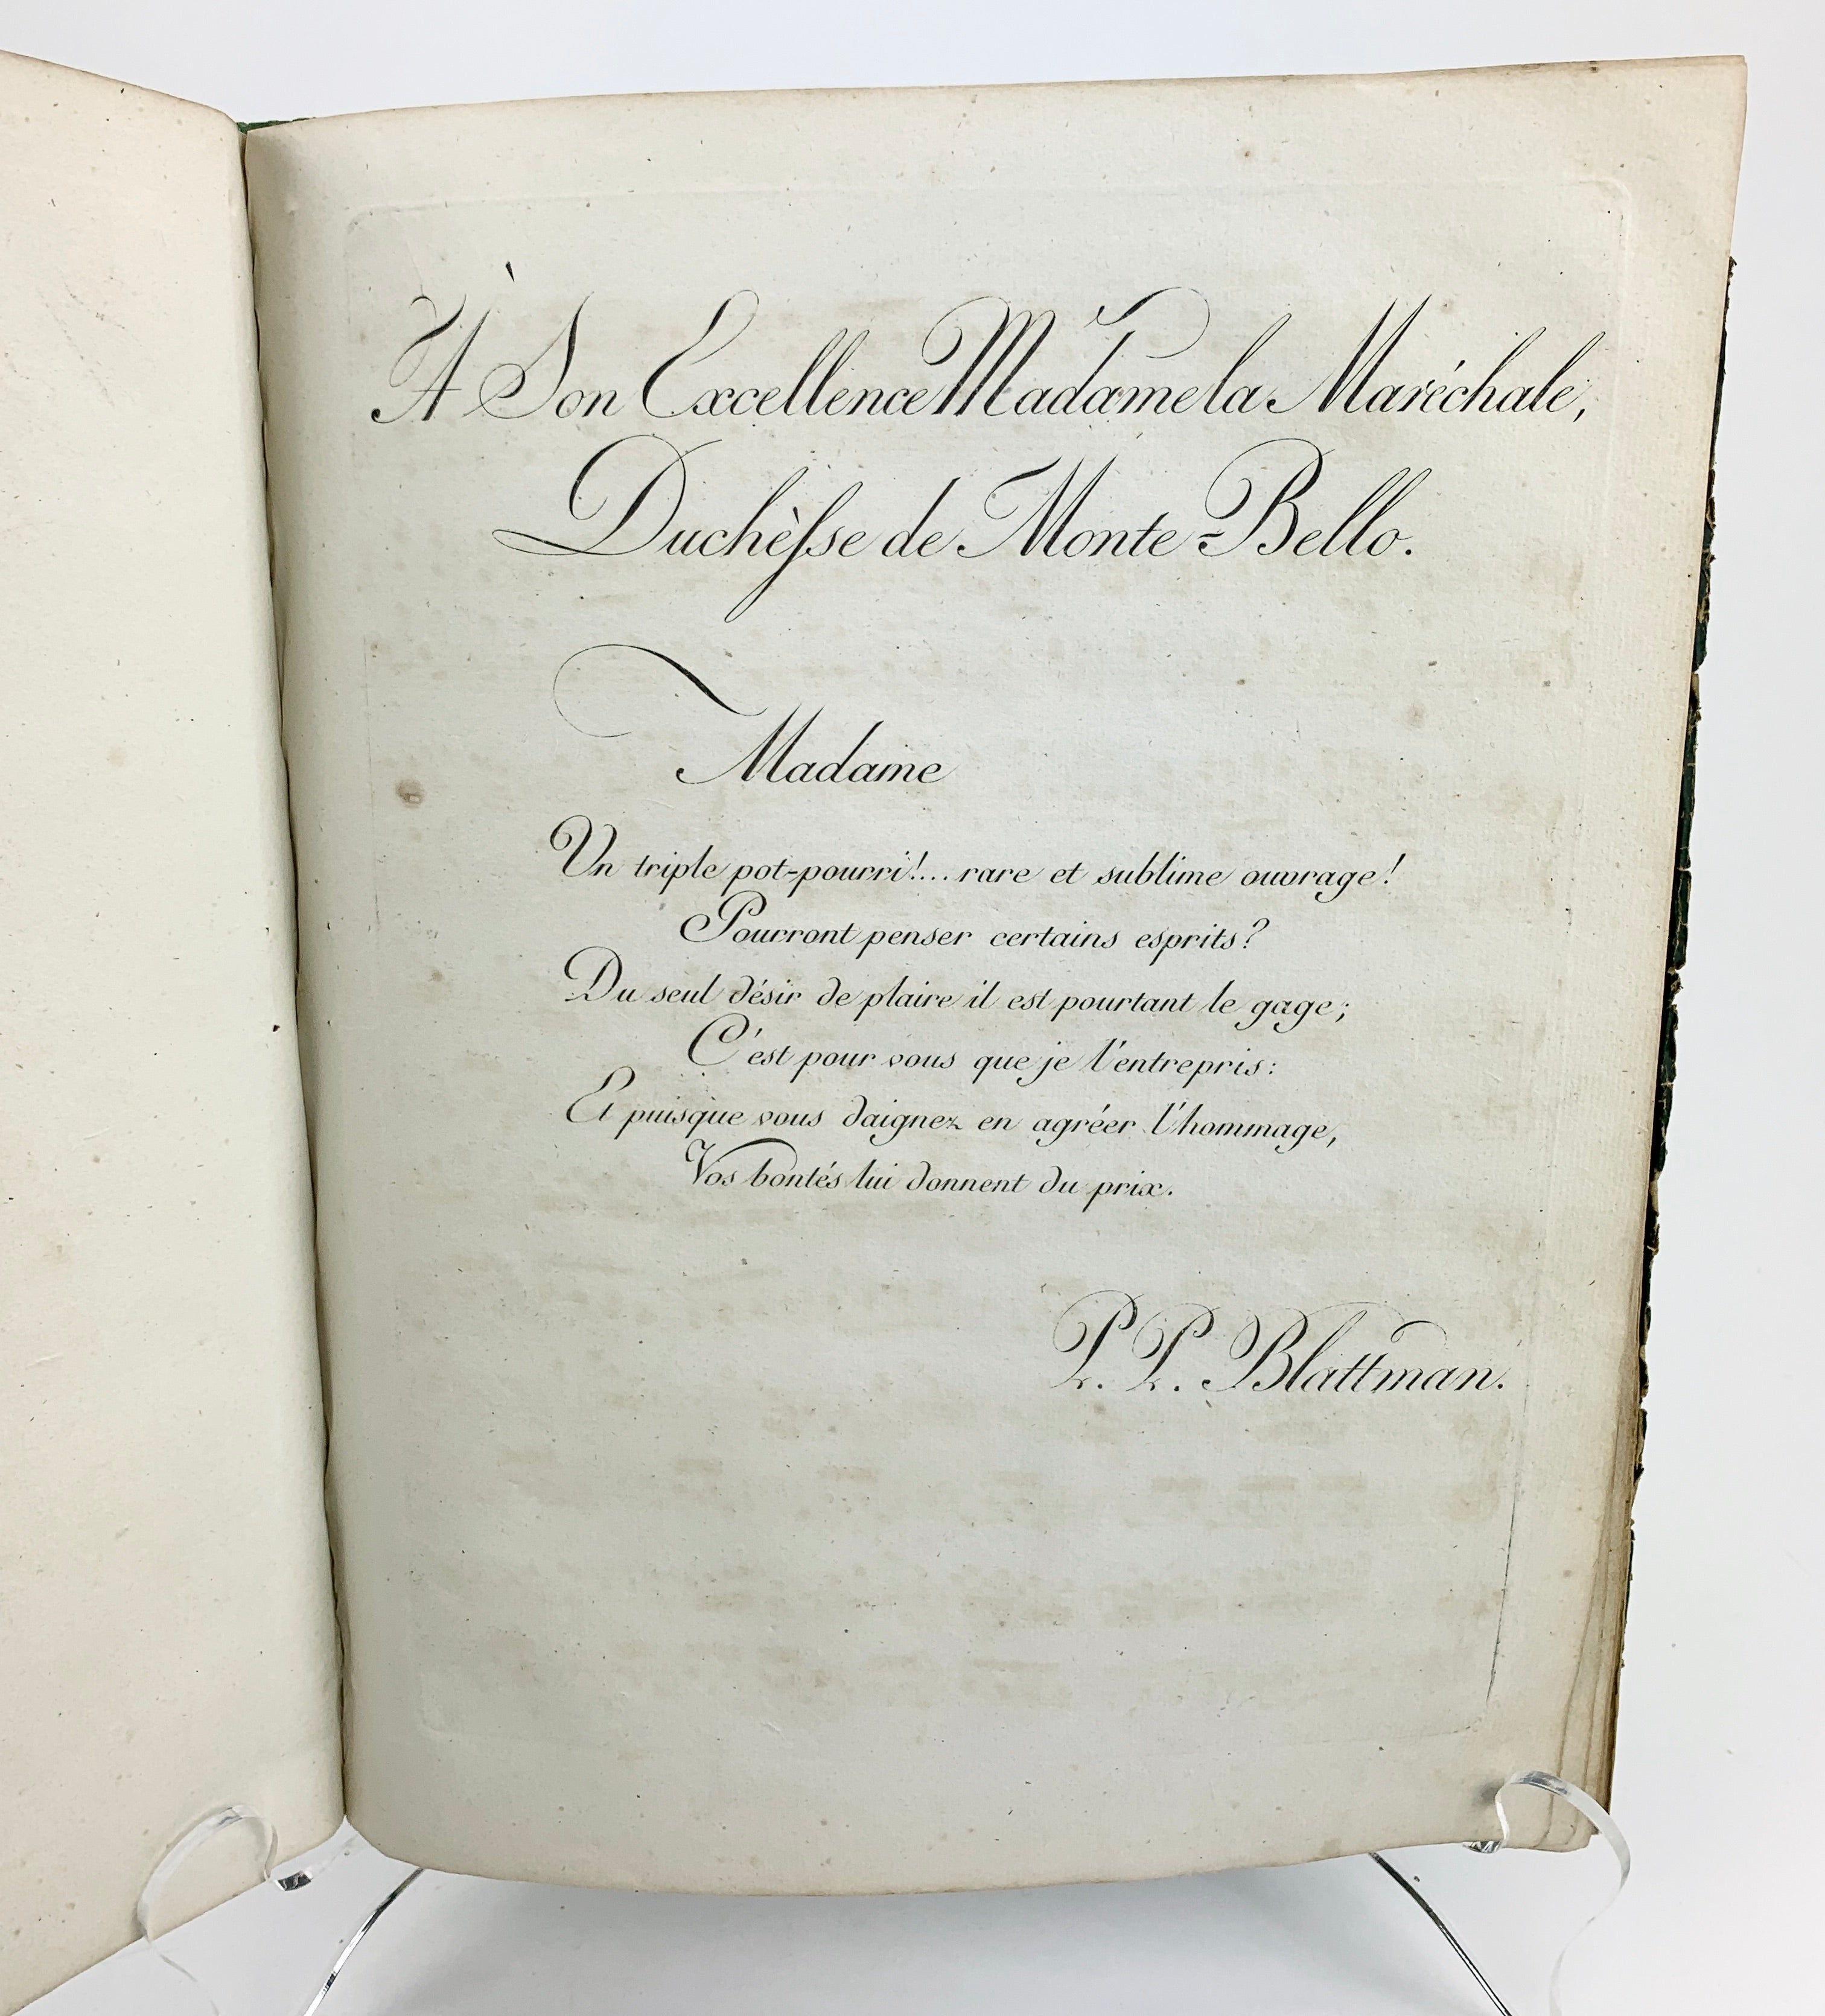 À Son Excellence Madame la Maréchale,
Duchèſse de Monte-Bello.
Madame
Un triple pot-pourri!... rare et sublime ouvrage!
Pourront penser certains esprits?
Du seul désir de plaire il est pourtant le gage;
C'est pour vous que je l'entrepris:
Et puisque vous daignez en agréer l'hommage,
Vos bontés lui donnent du prix.
P. P. Blattman.